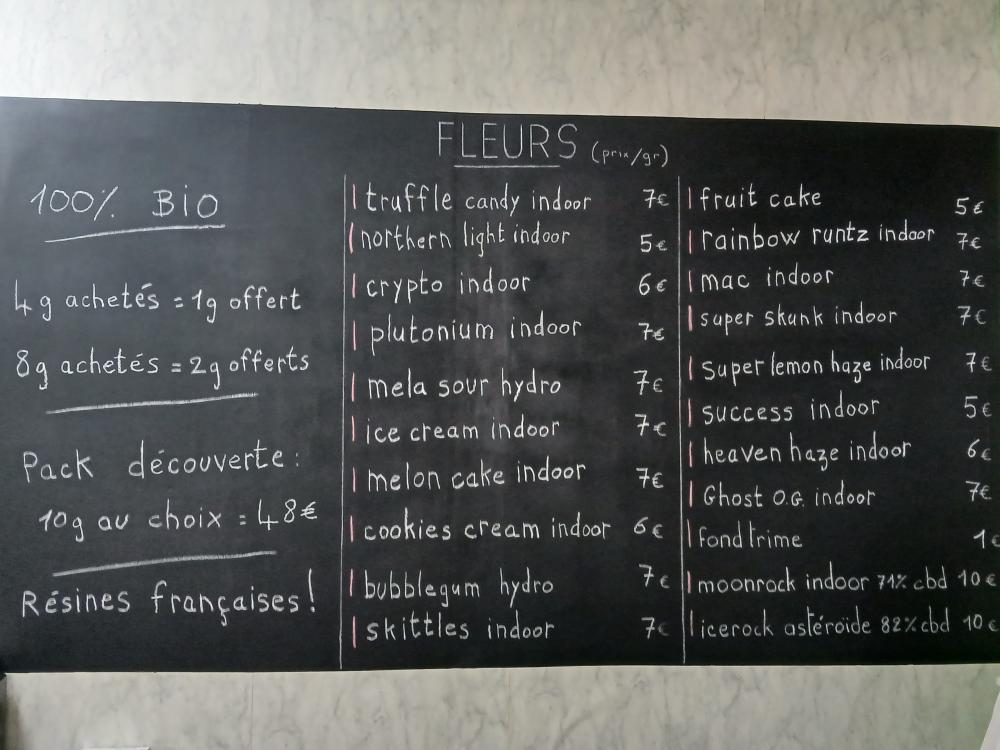 FLEURS (prix/gr)
100% BIO
4g achetés = 1g offert
8g achetés = 2g offerts
Pack découverte :
10g au choix = 48€
Résines françaises !
truffle candy indoor 7€
northern light indoor 5€
crypto indoor 6€
plutonium indoor 7€
mela sour hydro 7€
ice cream indoor 7€
melon cake indoor 7€
cookies cream indoor 6€
bubblegum hydro 7€
skittles indoor 7€
fruit cake 5€
rainbow runtz indoor 7€
mac indoor 7€
super skunk indoor 7€
Super lemon haze indoor 7€
success indoor 5€
heaven haze indoor 6€
Ghost O.G. indoor 7€
fond trime 1€
moonrock indoor 71% cbd 10€
icerock astéroïde 82% cbd 10€